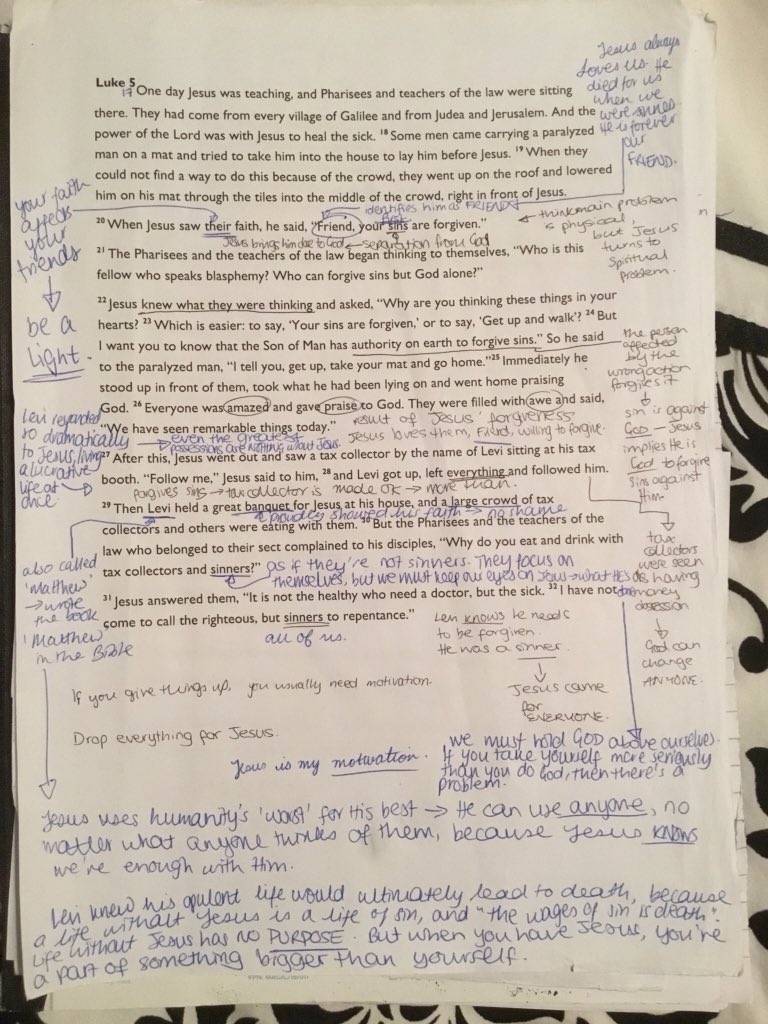 Luke 5
17 One day Jesus was teaching, and Pharisees and teachers of the law were sitting
there. They had come from every village of Galilee and from Judea and Jerusalem. And the
power of the Lord was with Jesus to heal the sick. 18 Some men came carrying a paralyzed
man on a mat and tried to take him into the house to lay him before Jesus. 19 When they
could not find a way to do this because of the crowd, they went up on the roof and lowered
him on his mat through the tiles into the middle of the crowd, right in front of Jesus.
Jesus always
loves us. He
died for us
when we
were sinners.
He is forever
our
FRIEND.
your faith
affects
your
friends
be a
light
identifies him as FRIEND
first
20 When Jesus saw their faith, he said, "Friend, your sins are forgiven."
Jesus brings him due to God
separation from God
think main problem
is physical,
but Jesus
turns to
spiritual
problem.
21 The Pharisees and the teachers of the law began thinking to themselves, "Who is this
fellow who speaks blasphemy? Who can forgive sins but God alone?"
22 Jesus knew what they were thinking and asked, "Why are you thinking these things in your
hearts? 23 Which is easier: to say, 'Your sins are forgiven,' or to say, 'Get up and walk'? 24 But
I want you to know that the Son of Man has authority on earth to forgive sins." So he said
to the paralyzed man, "I tell you, get up, take your mat and go home." 25 Immediately he
stood up in front of them, took what he had been lying on and went home praising
God. 26 Everyone was amazed and gave praise to God. They were filled with awe and said,
"We have seen remarkable things today."
result of Jesus' forgiveness
Jesus loves them, willing to forgive.
the person
affected
by the
wrong action
forgives it
sin is against
God - Jesus
implies He is
God to forgive
sins against
Him.
Levi responded
so dramatically
to Jesus, living
a lucrative
life at
once.
even the greatest
possessions are NOTHING without Jesus.
27 After this, Jesus went out and saw a tax collector by the name of Levi sitting at his tax
booth. "Follow me," Jesus said to him, 28 and Levi got up, left everything and followed him.
forgives sins → tax collector is made OK → more than.
29 Then Levi held a great banquet for Jesus at his house, and a large crowd of tax
proudly showed his faith → no shame
collectors and others were eating with them. 30 But the Pharisees and the teachers of the
law who belonged to their sect complained to his disciples, "Why do you eat and drink with
tax collectors and sinners?"
as if they're not sinners. They focus on
themselves, but we must keep our eyes on Jesus → what HE's
31 Jesus answered them, "It is not the healthy who need a doctor, but the sick. 32 I have not
come to call the righteous, but sinners to repentance."
all of us.
tax
collectors
were seen
as having
money
obsession
God can
change
ANYONE.
also called
'Matthew'
→ wrote
the book
'Matthew'
in the Bible
Levi knows he needs
to be forgiven.
He was a sinner.
Jesus came
for
EVERYONE.
If you give things up, you usually need motivation.
Drop everything for Jesus.
Jesus is my motivation.
we must hold GOD above ourselves.
If you take yourself more seriously
than you do God, then there's a
problem.
Jesus uses humanity's 'worst' for His best → He can use anyone, no
matter what anyone thinks of them, because Jesus KNOWS
we're enough with Him.
Levi knew his opulent life would ultimately lead to death, because
a life without Jesus is a life of sin, and "the wages of sin is death".
Life without Jesus has no PURPOSE. But when you have Jesus, you're
a part of something bigger than yourself.